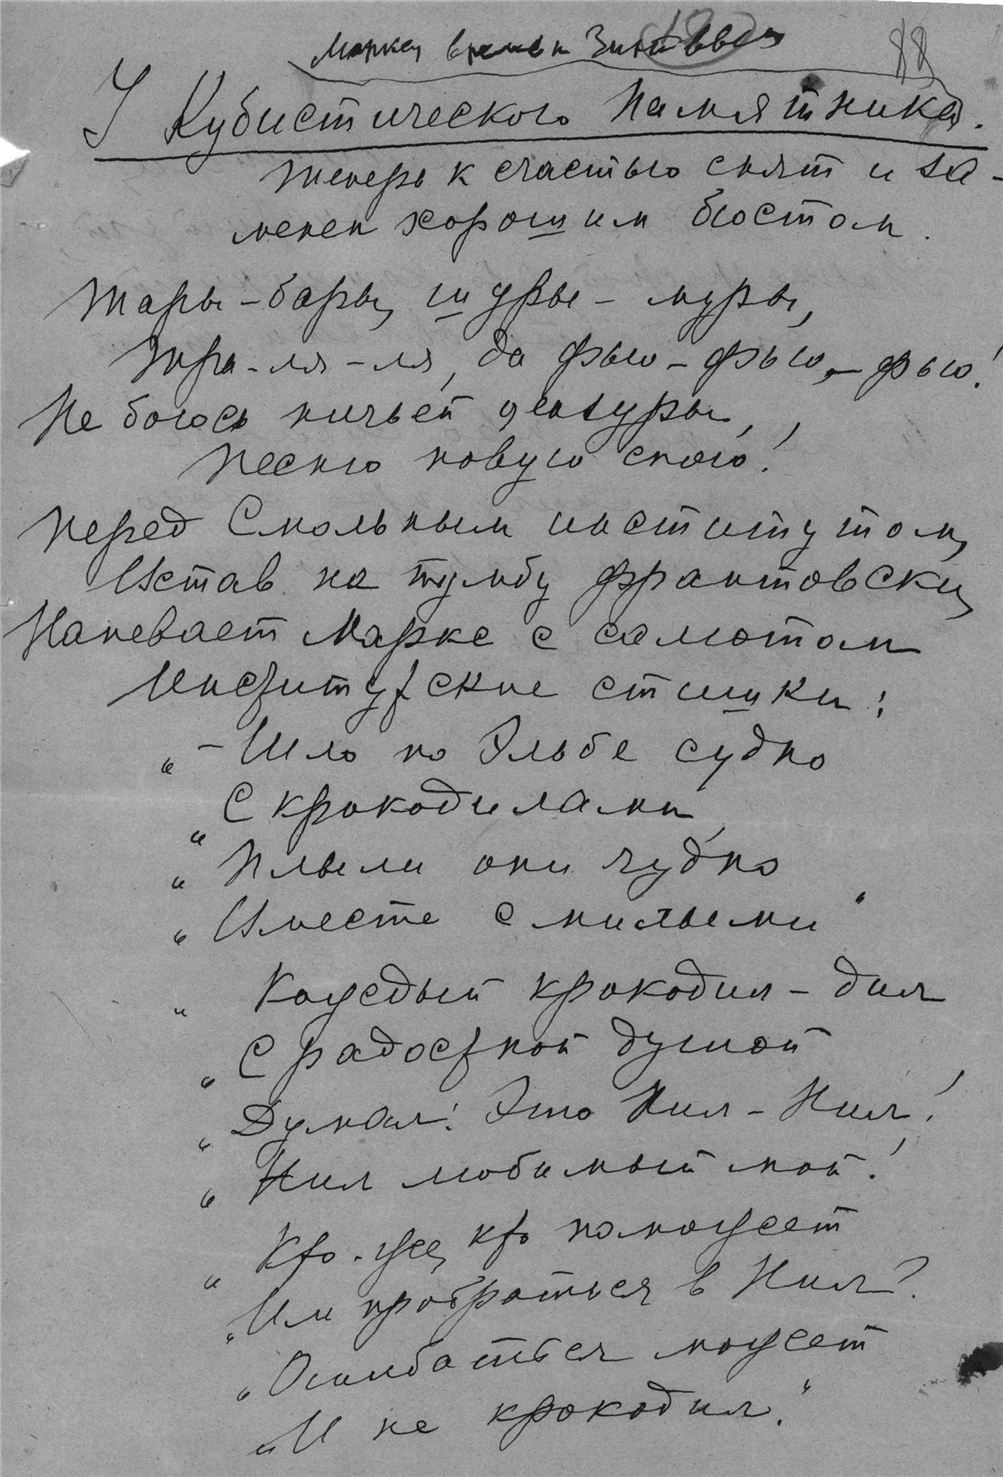 Маркса времен Зиновьева
88
У Кубистического Памятника.
теперь к счастью снят и за-
менен хорошим бюстом.
Тары-бары, шуры-муры,
Тра-ля-ля, да фью-фью,-фью!
Не боюсь ничьей цензуры,
Песню новую спою!
Перед Смольным институтом,
Встав на тумбу франтовски,
Напевает Маркс с салютом
Институтские стишки:
„-Шло по Эльбе судно
„С крокодилами,
„Плыли они чудно
„Вместе с милыми"
„Каждый крокодил-дил
„С радостной душой
„Думал: Это Нил-Нил!
„Нил любимый мой!
„Кто-же, кто поможет
„Им пробраться в Нил?
„Ошибаться может
„И не крокодил."